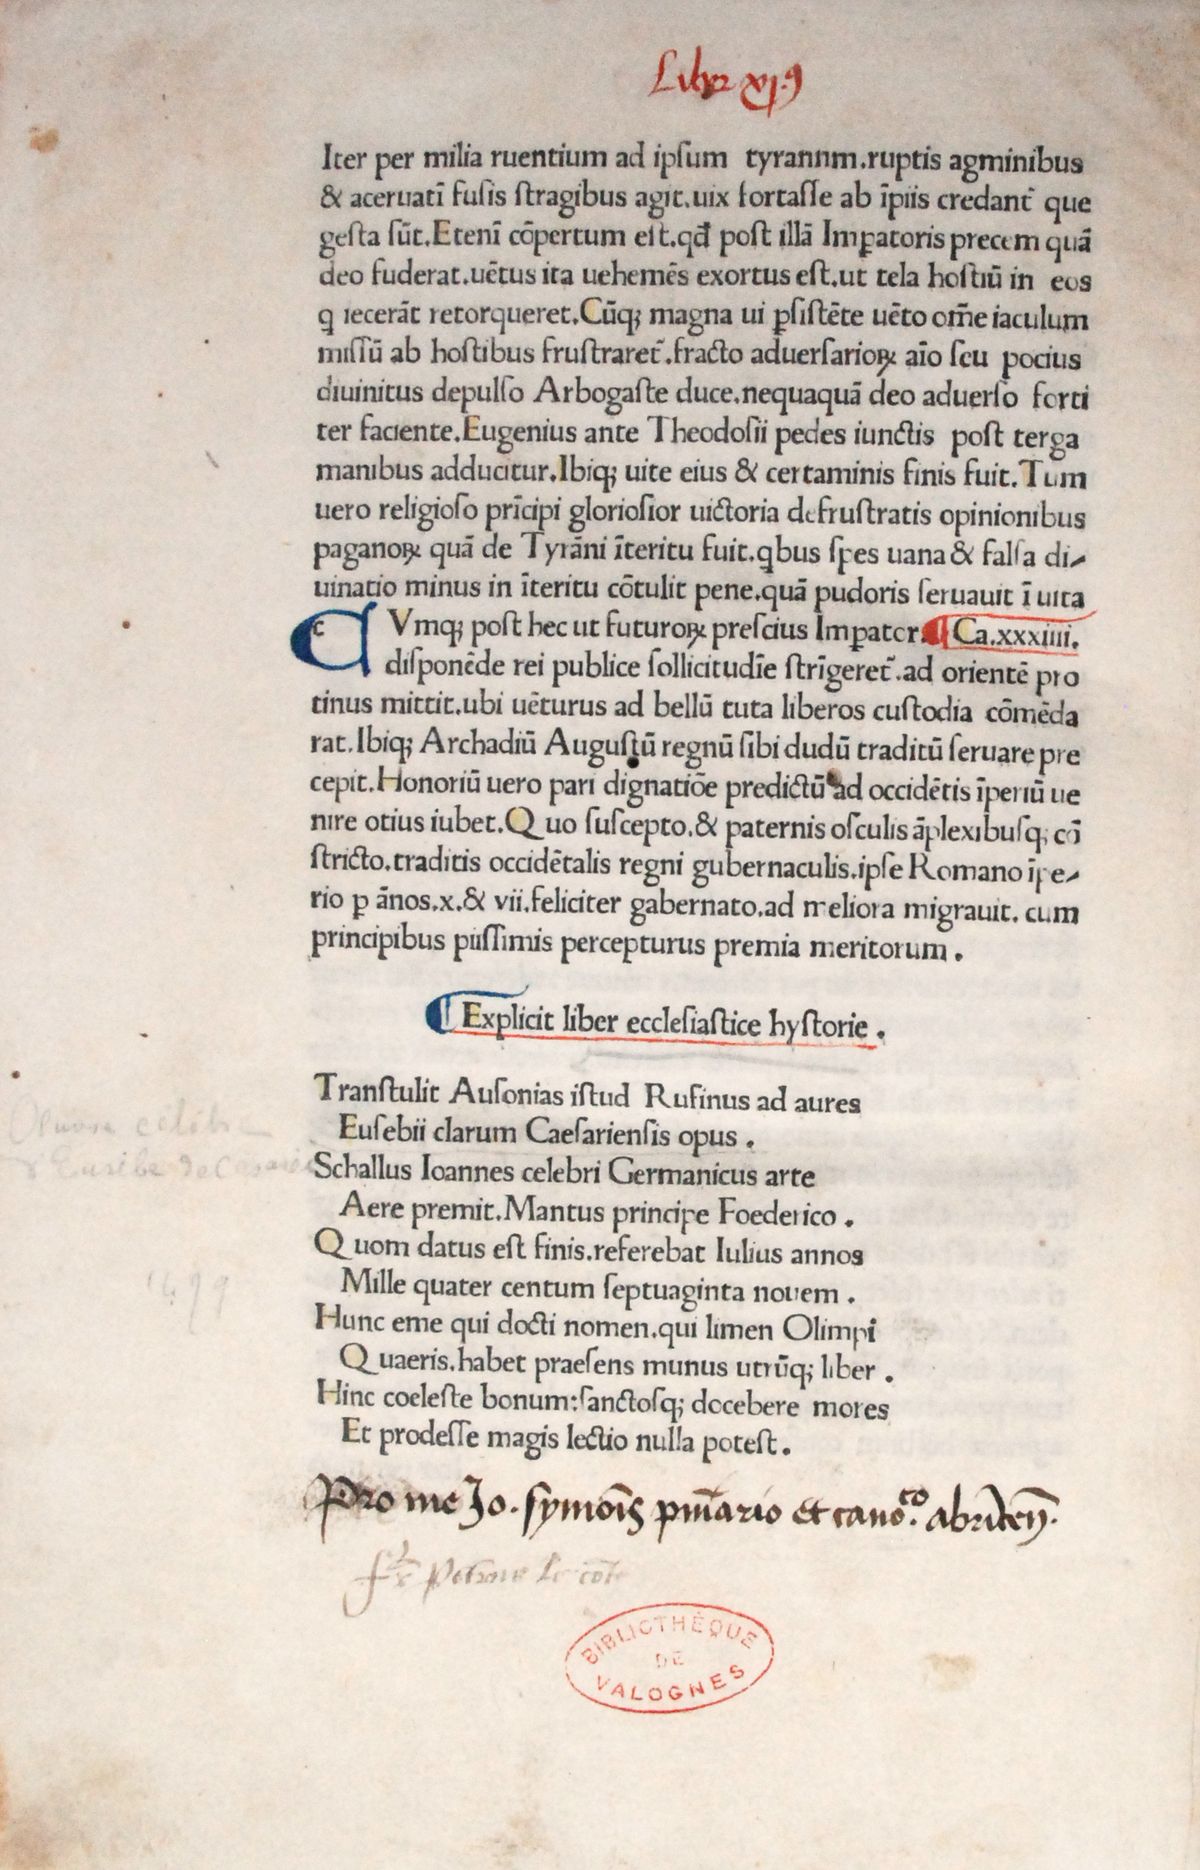 Liber xjꝰ
Iter per milia ruentium ad ipſum tyrannm.ruptis agminibus
& aceruatī fuſis ſtragibus agit.uix fortaſſe ab īpiis credant̄ que
geſta ſūt.Etenī cōpertum eſt.qđ poſt illā Imꝑatoris precem quā
deo fuderat.uētus ita uehemēs exortus eſt.ut tela hoſtiū in eos
q iecerāt retorqueret.Cūqꝫ magna ui ꝑſiſtēte uēto om̄e iaculum
miſſū ab hoſtibus fruſtraret̄.fracto aduerſarioꝝ aīo ſeu pocius
diuinitus depulſo Arbogaſte duce.nequaquā deo aduerſo forti
ter faciente.Eugenius ante Theodoſii pedes iunctis poſt terga
manibus adducitur.Ibiqꝫ uite eius & certaminis finis fuit.Tum
uero religioſo prīcipi glorioſior uictoria defruſtratis opinionibus
paganoꝝ quā de Tyrāni īteritu fuit.qbus ſpes uana & falſa di-
uinatio minus in īteritu cōtulit pene.quā pudoris ſeruauit ī uita
CVmqꝫ poſt hec ut futuroꝝ preſcius Imꝑator. Ca.xxxiiii.
diſponēde rei publice ſollicitudīe ſtrīgeret̄.ad orientē pro
tinus mittit.ubi uēturus ad bellū tuta liberos cuſtodia cōmēda
rat.Ibiqꝫ Archadiū Auguſtū regnū ſibi dudū traditū ſeruare pre
cepit.Honoriū uero pari dignatiōe predictū ad occidētis īperiū ue
nire otius iubet.Quo ſuſcepto.& paternis oſculis āplexibuſqꝫ cō
ſtricto.traditis occidētalis regni gubernaculis.ipſe Romano īpe-
rio ꝑ ānos.x.& vii.feliciter gabernato.ad meliora migrauit. cum
principibus piiſſimis percepturus premia meritorum.
Explicit liber eccleſiaſtice hyſtorie.
Tranſtulit Auſonias iſtud Rufinus ad aures
Euſebii clarum Caeſarienſis opus.
Schallus Ioannes celebri Germanicus arte
Aere premit.Mantus principe Foederico.
Quom datus eſt finis.referebat Iulius annos
Mille quater centum ſeptuaginta nouem.
Hunc eme qui docti nomen.qui limen Olimpi
Quaeris.habet praeſens munus utrūqꝫ liber.
Hinc coeleſte bonum:ſanctoſqꝫ docebere mores
Et prodeſſe magis lectio nulla poteſt.
Pro me Jo. ſymōis et cano.co abrīcen̄.
1479
BIBLIOTHÈQUE
DE
VALOGNES